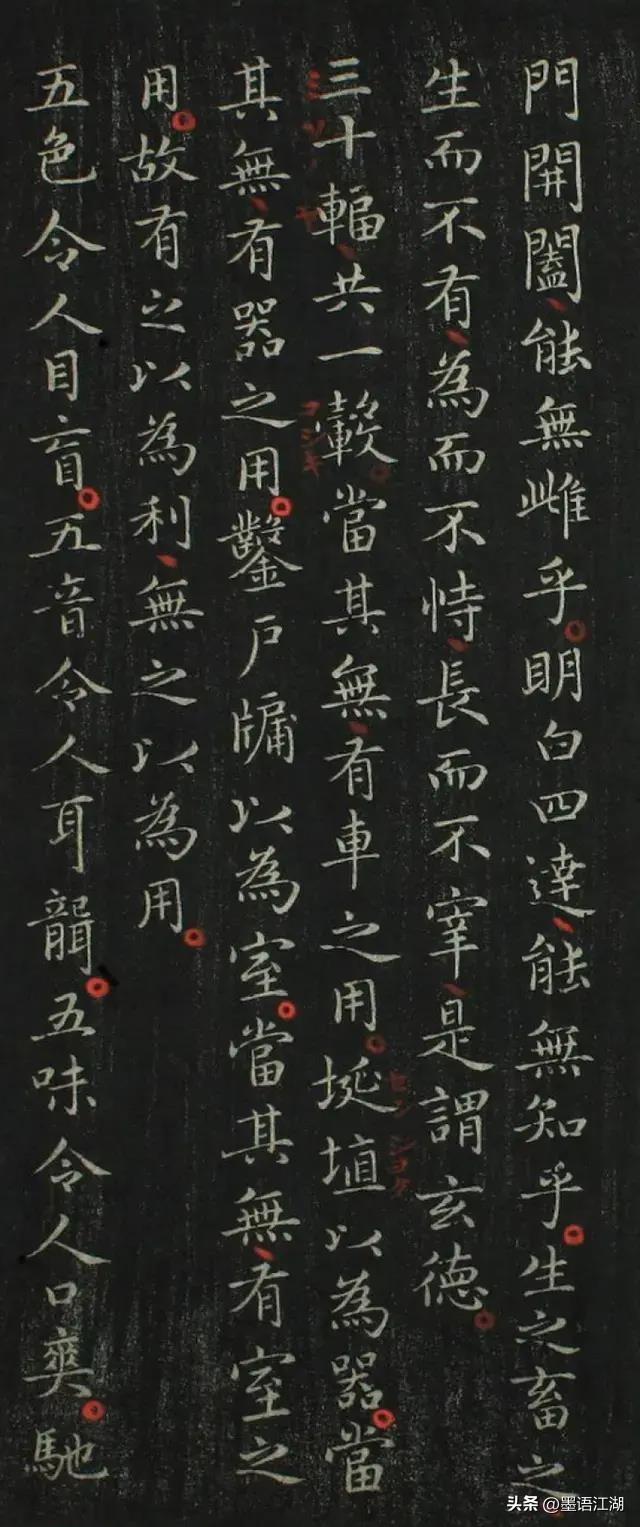 門開闔能無雌乎明白四達能無知乎生之畜之
生而不有為而不恃長而不宰是謂玄德
三十輻共一轂當其無有車之用埏埴以為器當
其無有器之用鑿戶牖以為室當其無有室之
用故有之以為利無之以為用
五色令人目盲五音令人耳聾五味令人口爽馳
ミソ ヤ
コシキ
セン シヨク
头条 @墨语江湖